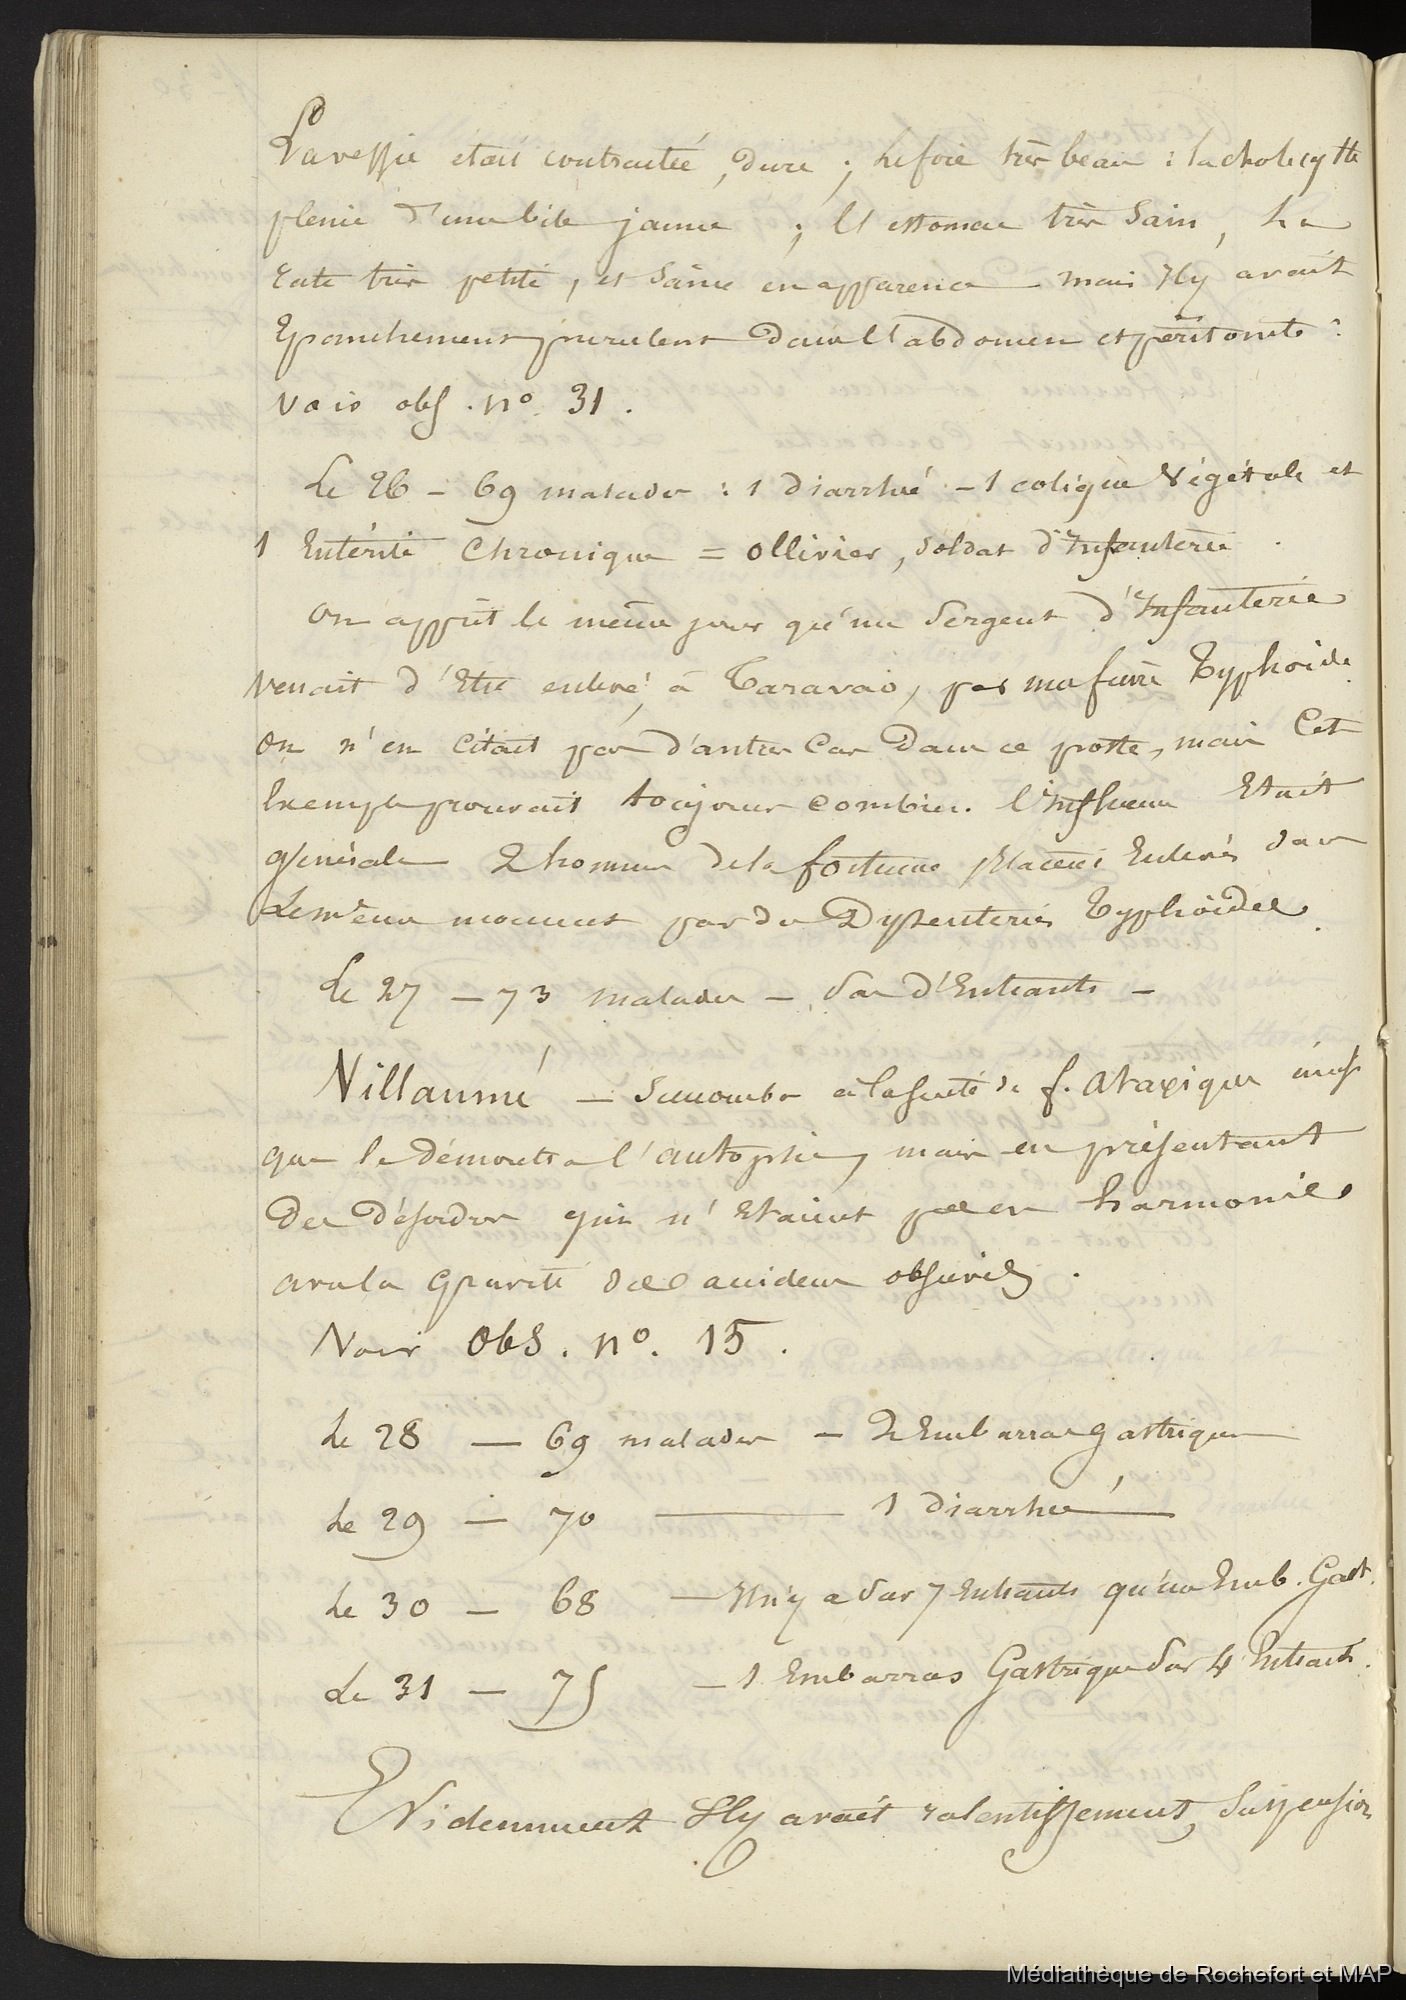 La vessie était contractée, dure ; le foie très beau : la cholecyste
pleine d'une bile jaune ; l'estomac très sain, la
rate très petite, et saine en apparence mais il y avait
Epanchement purulent dans l'abdomen et péritonite.
voir obs. n° 31.
Le 26 – 69 malades : 1 diarrhée – 1 colique végétale et
1 Entérite Chronique = Ollivier, soldat d'Infanterie.
On apprit le même jour qu'un Sergent d'Infanterie
venait d'être enlevé, à Taravao, par une fièvre Typhoïde.
On n'en citait pas d'autres cas dans ce poste, mais cet
Exemple prouvait toujours combien l'influence Etait
générale 2 hommes de la fortune placeris Enlevés dans
le même moment par des Dyssenteries Typhoïdes.
Le 27 – 73 malades – pas d'Entrants –
Villaumé – succombe à la suite de f. ataxique ainsi
que le démontre l'autopsie, mais en présentant
des désordres qui n'étaient pas en harmonie
avec la gravité des accidens observés.
Voir Obs. n°. 15.
Le 28 – 69 malades – 2 Embarras gastriques
Le 29 – 70 – 1 diarrhée –
Le 30 – 68 – Il n'y a sur 7 Entrants qu'un Emb. Gast.
Le 31 – 75 – 1 Embarras Gastrique sur 4 Entrants.
Evidemment Il y avait ralentissement, suspension
Médiathèque de Rochefort et MAP